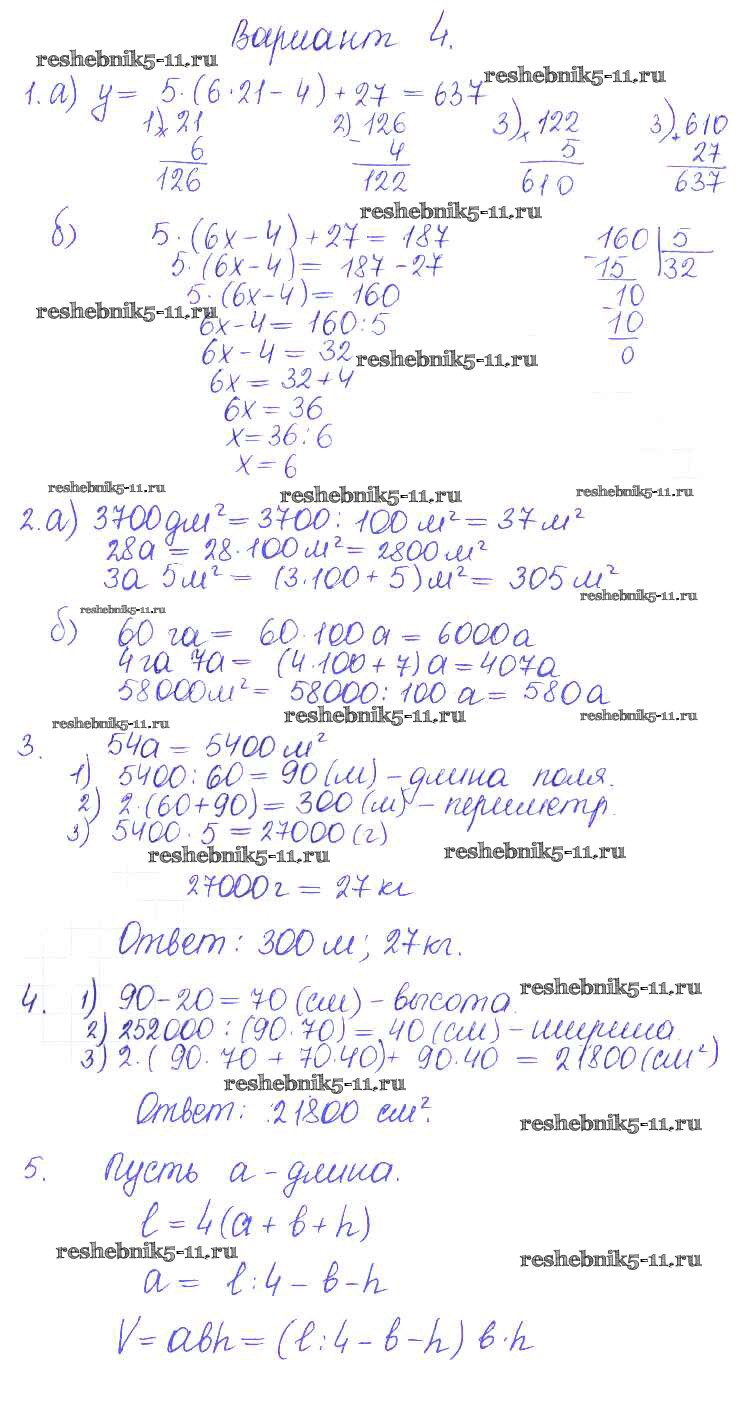 Вариант 4.
reshebnik5-11.ru
reshebnik5-11.ru
1. а) y = 5·(6·21-4)+27 = 637
1) × 21 2) - 126 3) × 122 3) + 610
6 4 5 27
126 122 610 637
reshebnik5-11.ru
б) 5·(6x-4)+27 = 187 160 | 5
5·(6x-4) = 187-27 - 15 | 32
5·(6x-4) = 160 - 10
reshebnik5-11.ru
6x-4 = 160:5 10
6x-4 = 32 0
reshebnik5-11.ru
6x = 32+4
6x = 36
x = 36:6
x = 6
reshebnik5-11.ru reshebnik5-11.ru reshebnik5-11.ru
2. а) 3700 дм² = 3700:100 м² = 37 м²
28а = 28·100 м² = 2800 м²
3а 5м² = (3·100+5) м² = 305 м²
reshebnik5-11.ru
reshebnik5-11.ru
б) 60 га = 60·100 а = 6000 а
4 га 7а = (4·100+7) а = 407а
58000 м² = 58000:100 а = 580 а
reshebnik5-11.ru reshebnik5-11.ru reshebnik5-11.ru
3. 54а = 5400 м²
1) 5400:60 = 90 (м) - длина поля.
2) 2·(60+90) = 300 (м) - периметр.
3) 5400·5 = 27000 (г)
reshebnik5-11.ru reshebnik5-11.ru
27000 г = 27 кг
Ответ: 300 м; 27 кг.
reshebnik5-11.ru
4. 1) 90-20 = 70 (см) - высота.
2) 252000:(90·70) = 40 (см) - ширина
3) 2·(90·70 + 70·40)+ 90·40 = 21800 (см²)
reshebnik5-11.ru
Ответ: 21800 см².
reshebnik5-11.ru
5. Пусть a - длина.
l = 4(a+b+h)
reshebnik5-11.ru reshebnik5-11.ru
a = l:4-b-h
V = abh = (l:4-b-h) b·h